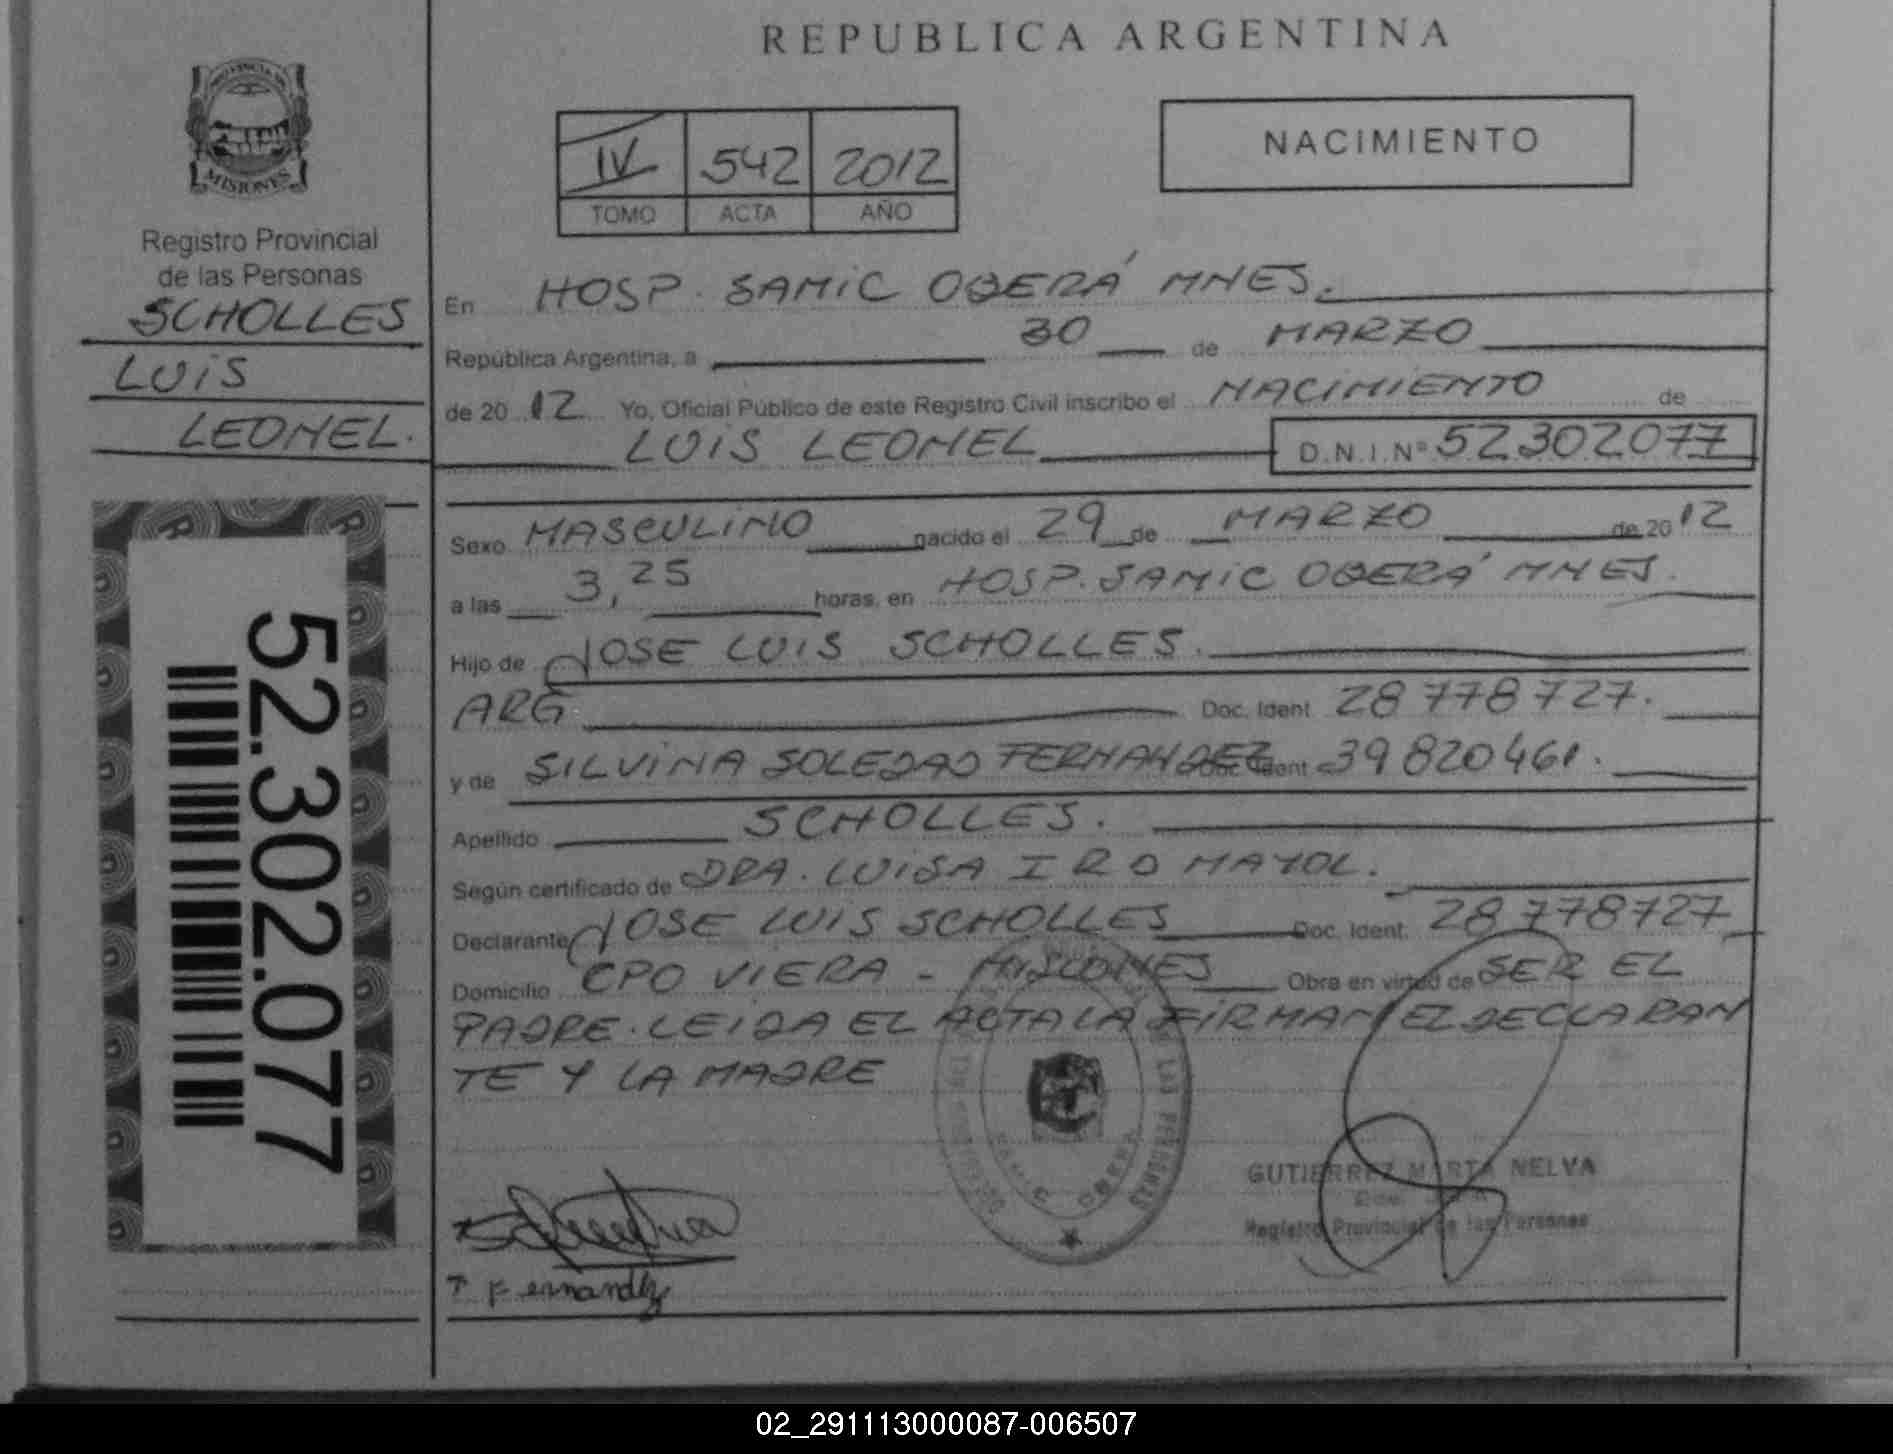 REPUBLICA ARGENTINA
PROVINCIA DE
MISIONES
Registro Provincial
de las Personas
SCHOLLES
LUIS
LEONEL.
52.302.077
IV 542 2012
TOMO ACTA AÑO
NACIMIENTO
En HOSP. SAMIC OBERÁ MNES.
República Argentina, a 30 de MARZO
de 2012 Yo, Oficial Público de este Registro Civil inscribo el NACIMIENTO de
LUIS LEONEL D.N.I.Nº 52302077
Sexo MASCULINO nacido el 29 de MARZO de 2012
a las 3,25 horas, en HOSP. SAMIC OBERÁ MNES.
Hijo de JOSE LUIS SCHOLLES.
ARG Doc. Ident 28778727.
y de SILVINA SOLEDAD FERNANDEZ Doc. Ident 39820461.
Apellido SCHOLLES.
Según certificado de DRA. LUISA I R O MAYOL.
Declarante JOSE LUIS SCHOLLES Doc. Ident. 28778727
Domicilio CPO VIERA - MISIONES Obra en virtud de SER EL
PADRE. LEIDA EL ACTA LA FIRMAN EL DECLARAN
TE Y LA MADRE
SAMIC OBERA
GUTIERREZ MARTA NELVA
Registro Provincial de las Personas
Fernandez
02_291113000087-006507